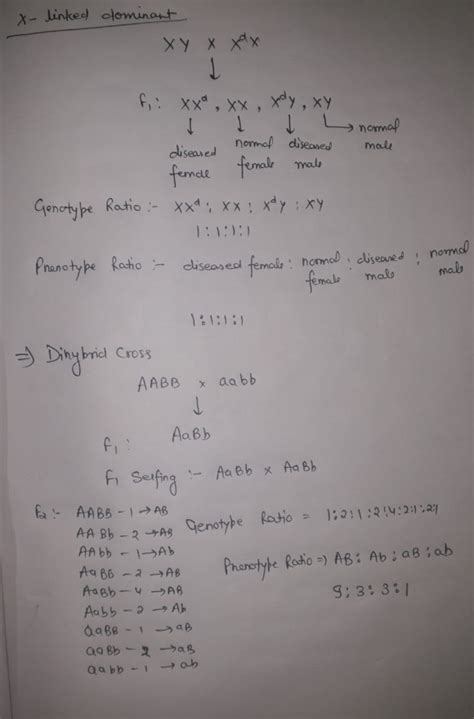 X-linked dominant
XY x XᵈX
↓
F₁: XXᵈ, XX, XᵈY, XY
↓ ↓ ↓ → normal male
diseased female normal female diseased male
Genotype Ratio :- XXᵈ : XX : XᵈY : XY
1:1:1:1
Phenotype Ratio :- diseased female : normal female : diseased male : normal male
1:1:1:1
⇒ Dihybrid Cross
AABB x aabb
↓
F₁: AaBb
F₁ Selfing :- AaBb x AaBb
F₂ :- AABB - 1 → AB
AABb - 2 → AB
AAbb - 1 → Ab
AaBB - 2 → AB
AaBb - 4 → AB
Aabb - 2 → Ab
aaBB - 1 → aB
aaBb - 2 → aB
aabb - 1 → ab
Genotype Ratio = 1:2:1:2:4:2:1:2:1
Phenotype Ratio ⇒ AB : Ab : aB : ab
9:3:3:1